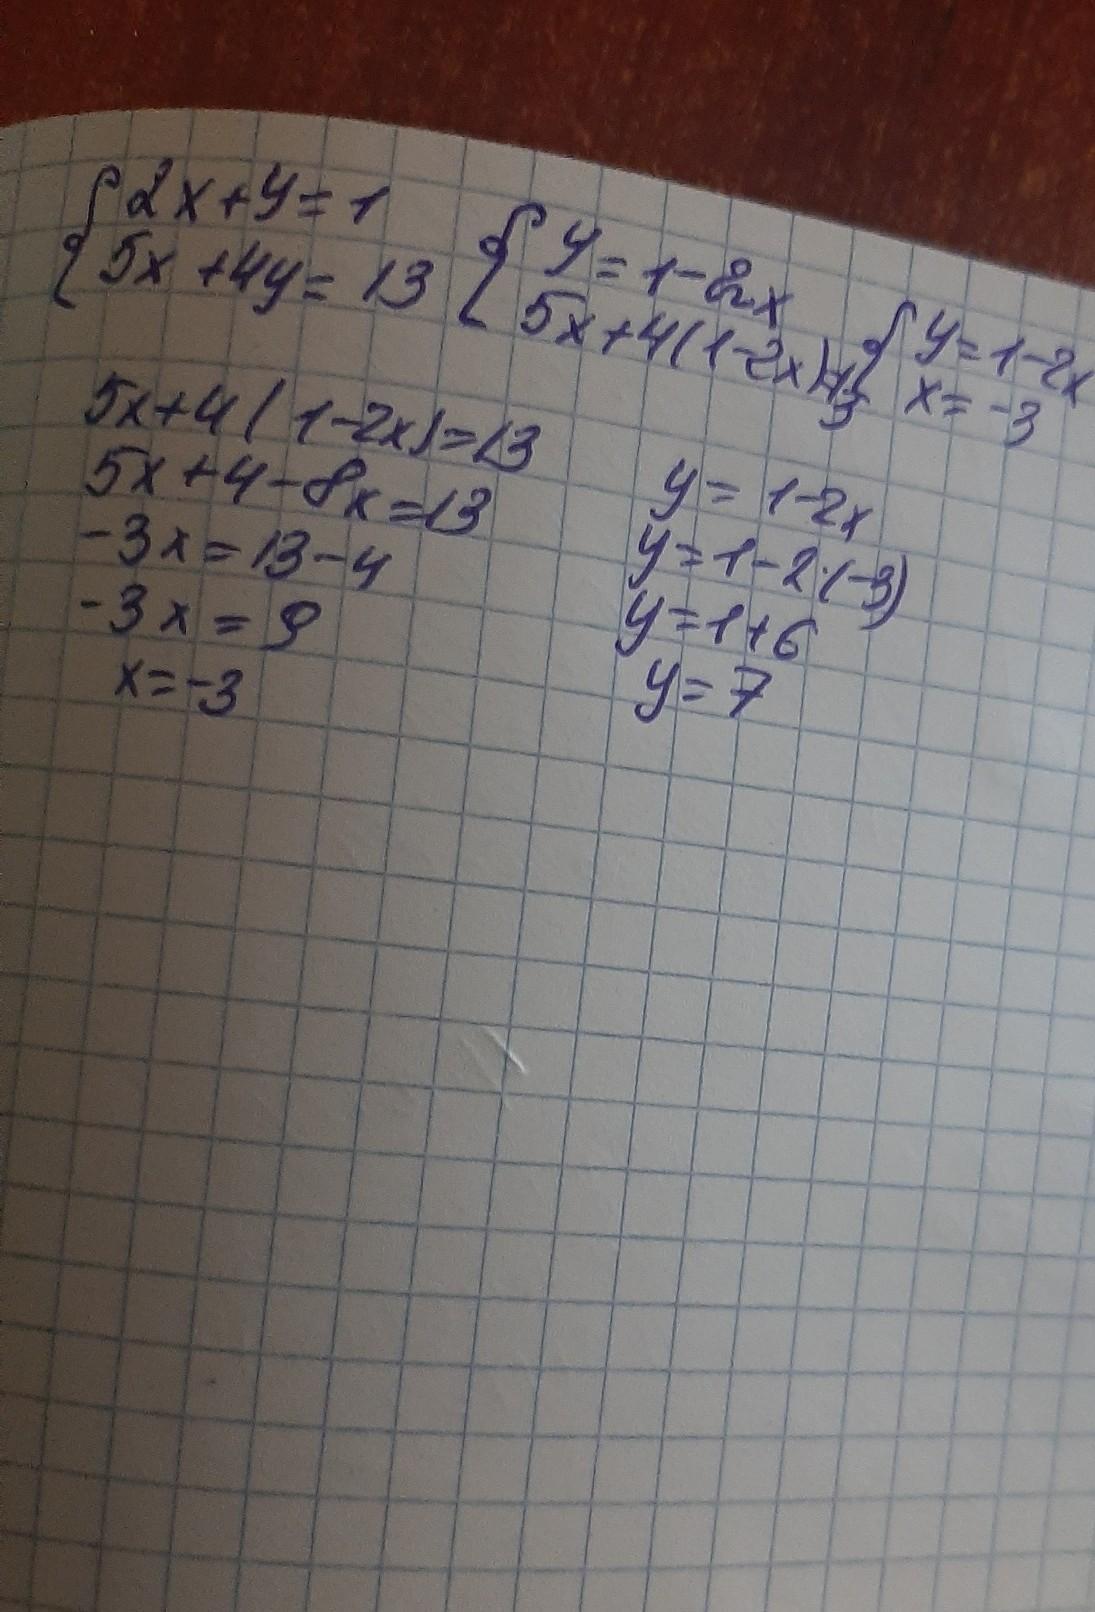 { 2x+y=1
5x+4y=13
{ y=1-2x
5x+4(1-2x)=13
{ y=1-2x
x=-3
5x+4(1-2x)=13
5x+4-8x=13
-3x=13-4
-3x=9
x=-3
y=1-2x
y=1-2·(-3)
y=1+6
y=7